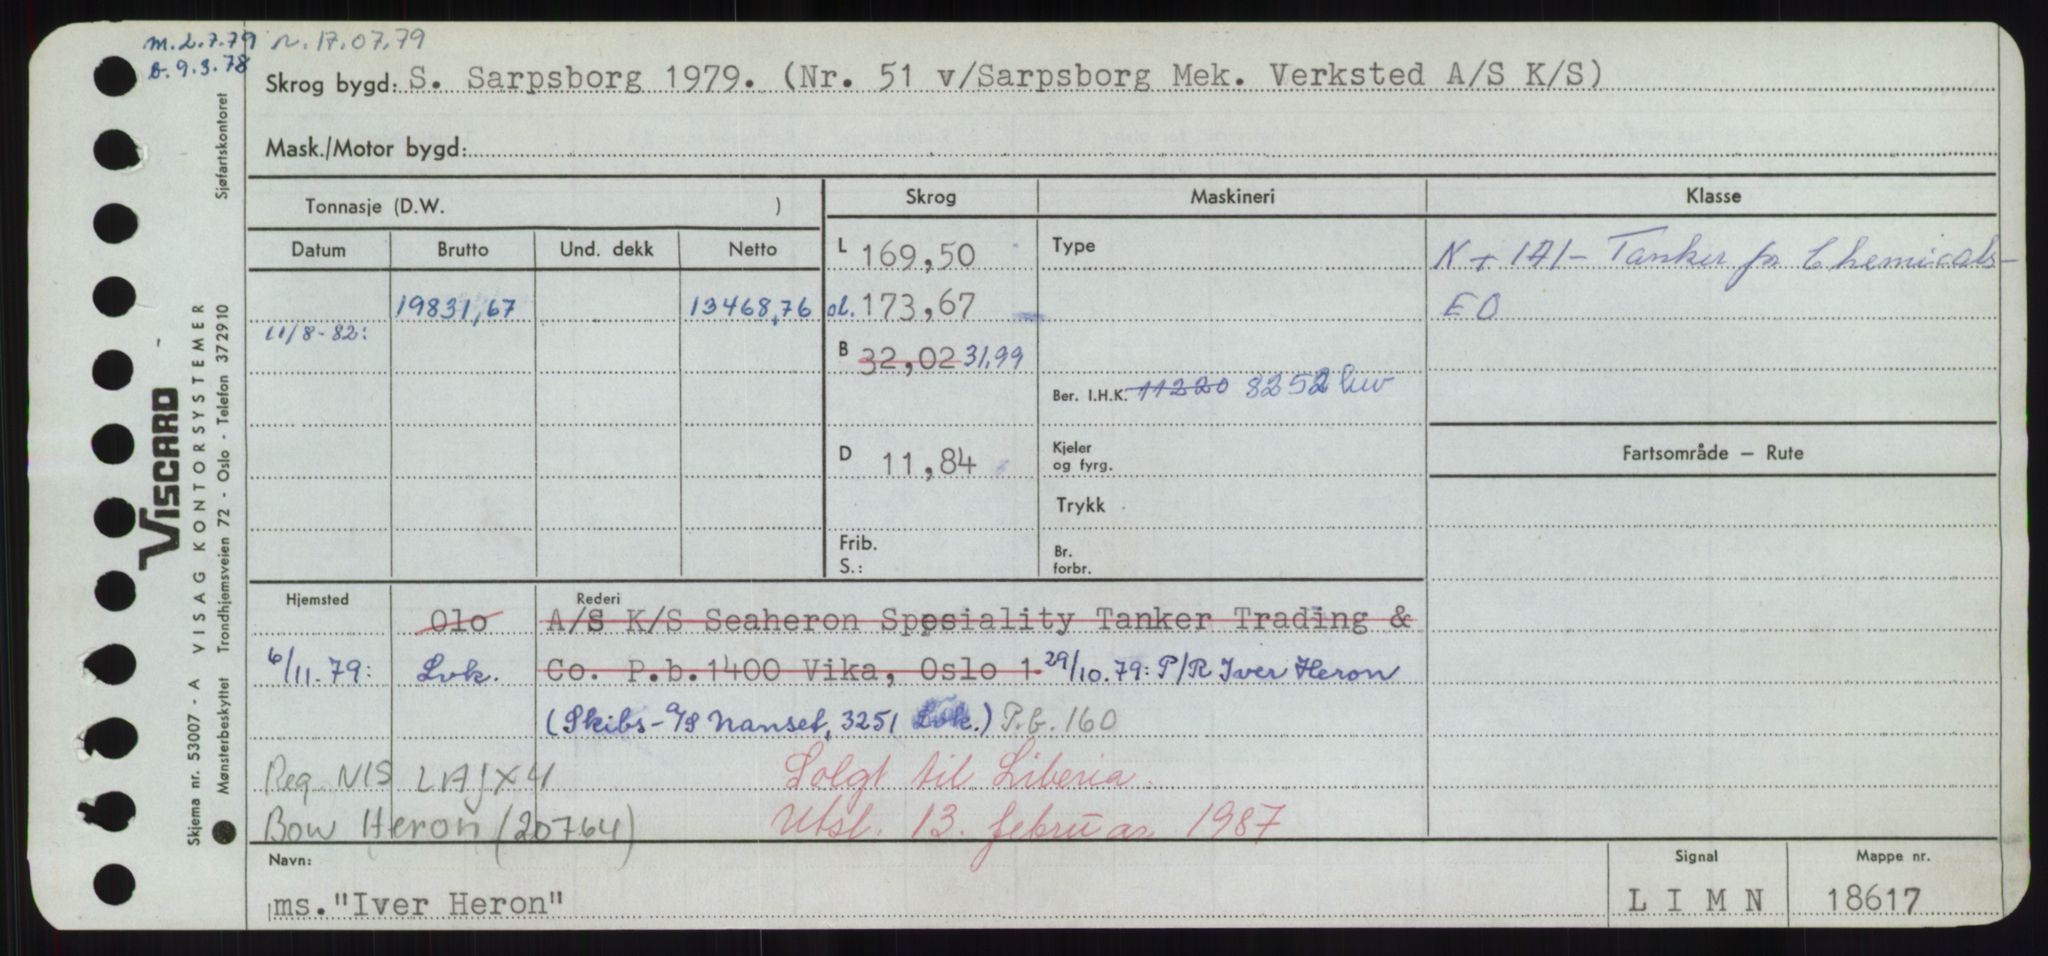 m. 2.7.79 n. 17.07.79
b. 9.3.78
Skrog bygd: S. Sarpsborg 1979. (Nr. 51 v/Sarpsborg Mek. Verksted A/S K/S)
Mask./Motor bygd:
Tonnasje (D.W. )
Skrog
Maskineri
Klasse
Datum Brutto Und. dekk Netto
L 169,50
Type
K + 1A1 - Tanker for Chemicals -
EO
19831,67 13468,76
ol. 173,67
11/8-82:
B 32,02 31,99
Ber. I.H.K. 11220 8252 kw
D 11,84
Kjeler
og fyrg.
Fartsområde – Rute
Trykk
Frib.
S.:
Br.
forbr.
Hjemsted Olo
Rederi
A/S K/S Seaheron Spesiality Tanker Trading &
6/11.79: Lvk. Co. P.b.1400 Vika, Oslo 1. 29/10.79: P/R Iver Heron
(Skibs-A/S Nanset, 3251 Lvk.) P.b. 160
Reg NIS LAJX4 Solgt til Liberia.
Bow Heron (20764) Utsl. 13. februar 1987
Navn:
ms."Iver Heron"
Signal
L I M N
Mappe nr.
18617
Skjema nr. 53007 - A VISAG KONTORSYSTEMER
Mønsterbeskyttet Trondhjemsveien 72 - Oslo - Telefon 372910
Sjøfartskontoret
VISCARD